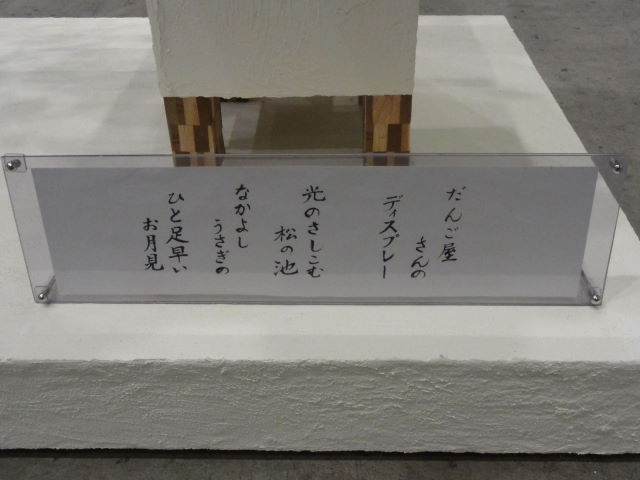 だんご屋
さんの
ディスプレー
光のさしこむ
松の池
なかよし
うさぎの
ひと足早い
お月見